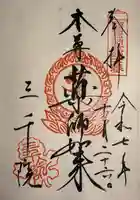 奉拝
令和七年
十一月二十六日
本尊薬師如来
三千院